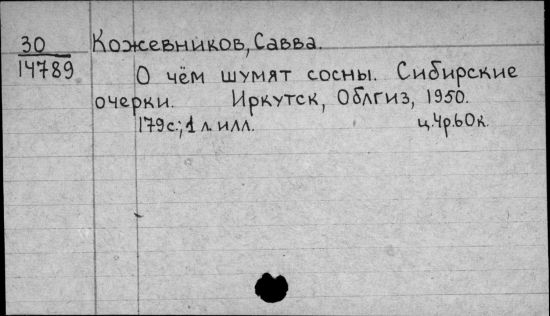 30 Кожевников, Савва.
14789
О чём шумят сосны. Сибирские
очерки. Иркутск, Облгиз, 1950.
179с.; 1 л. илл. ц. 4р. 60к.